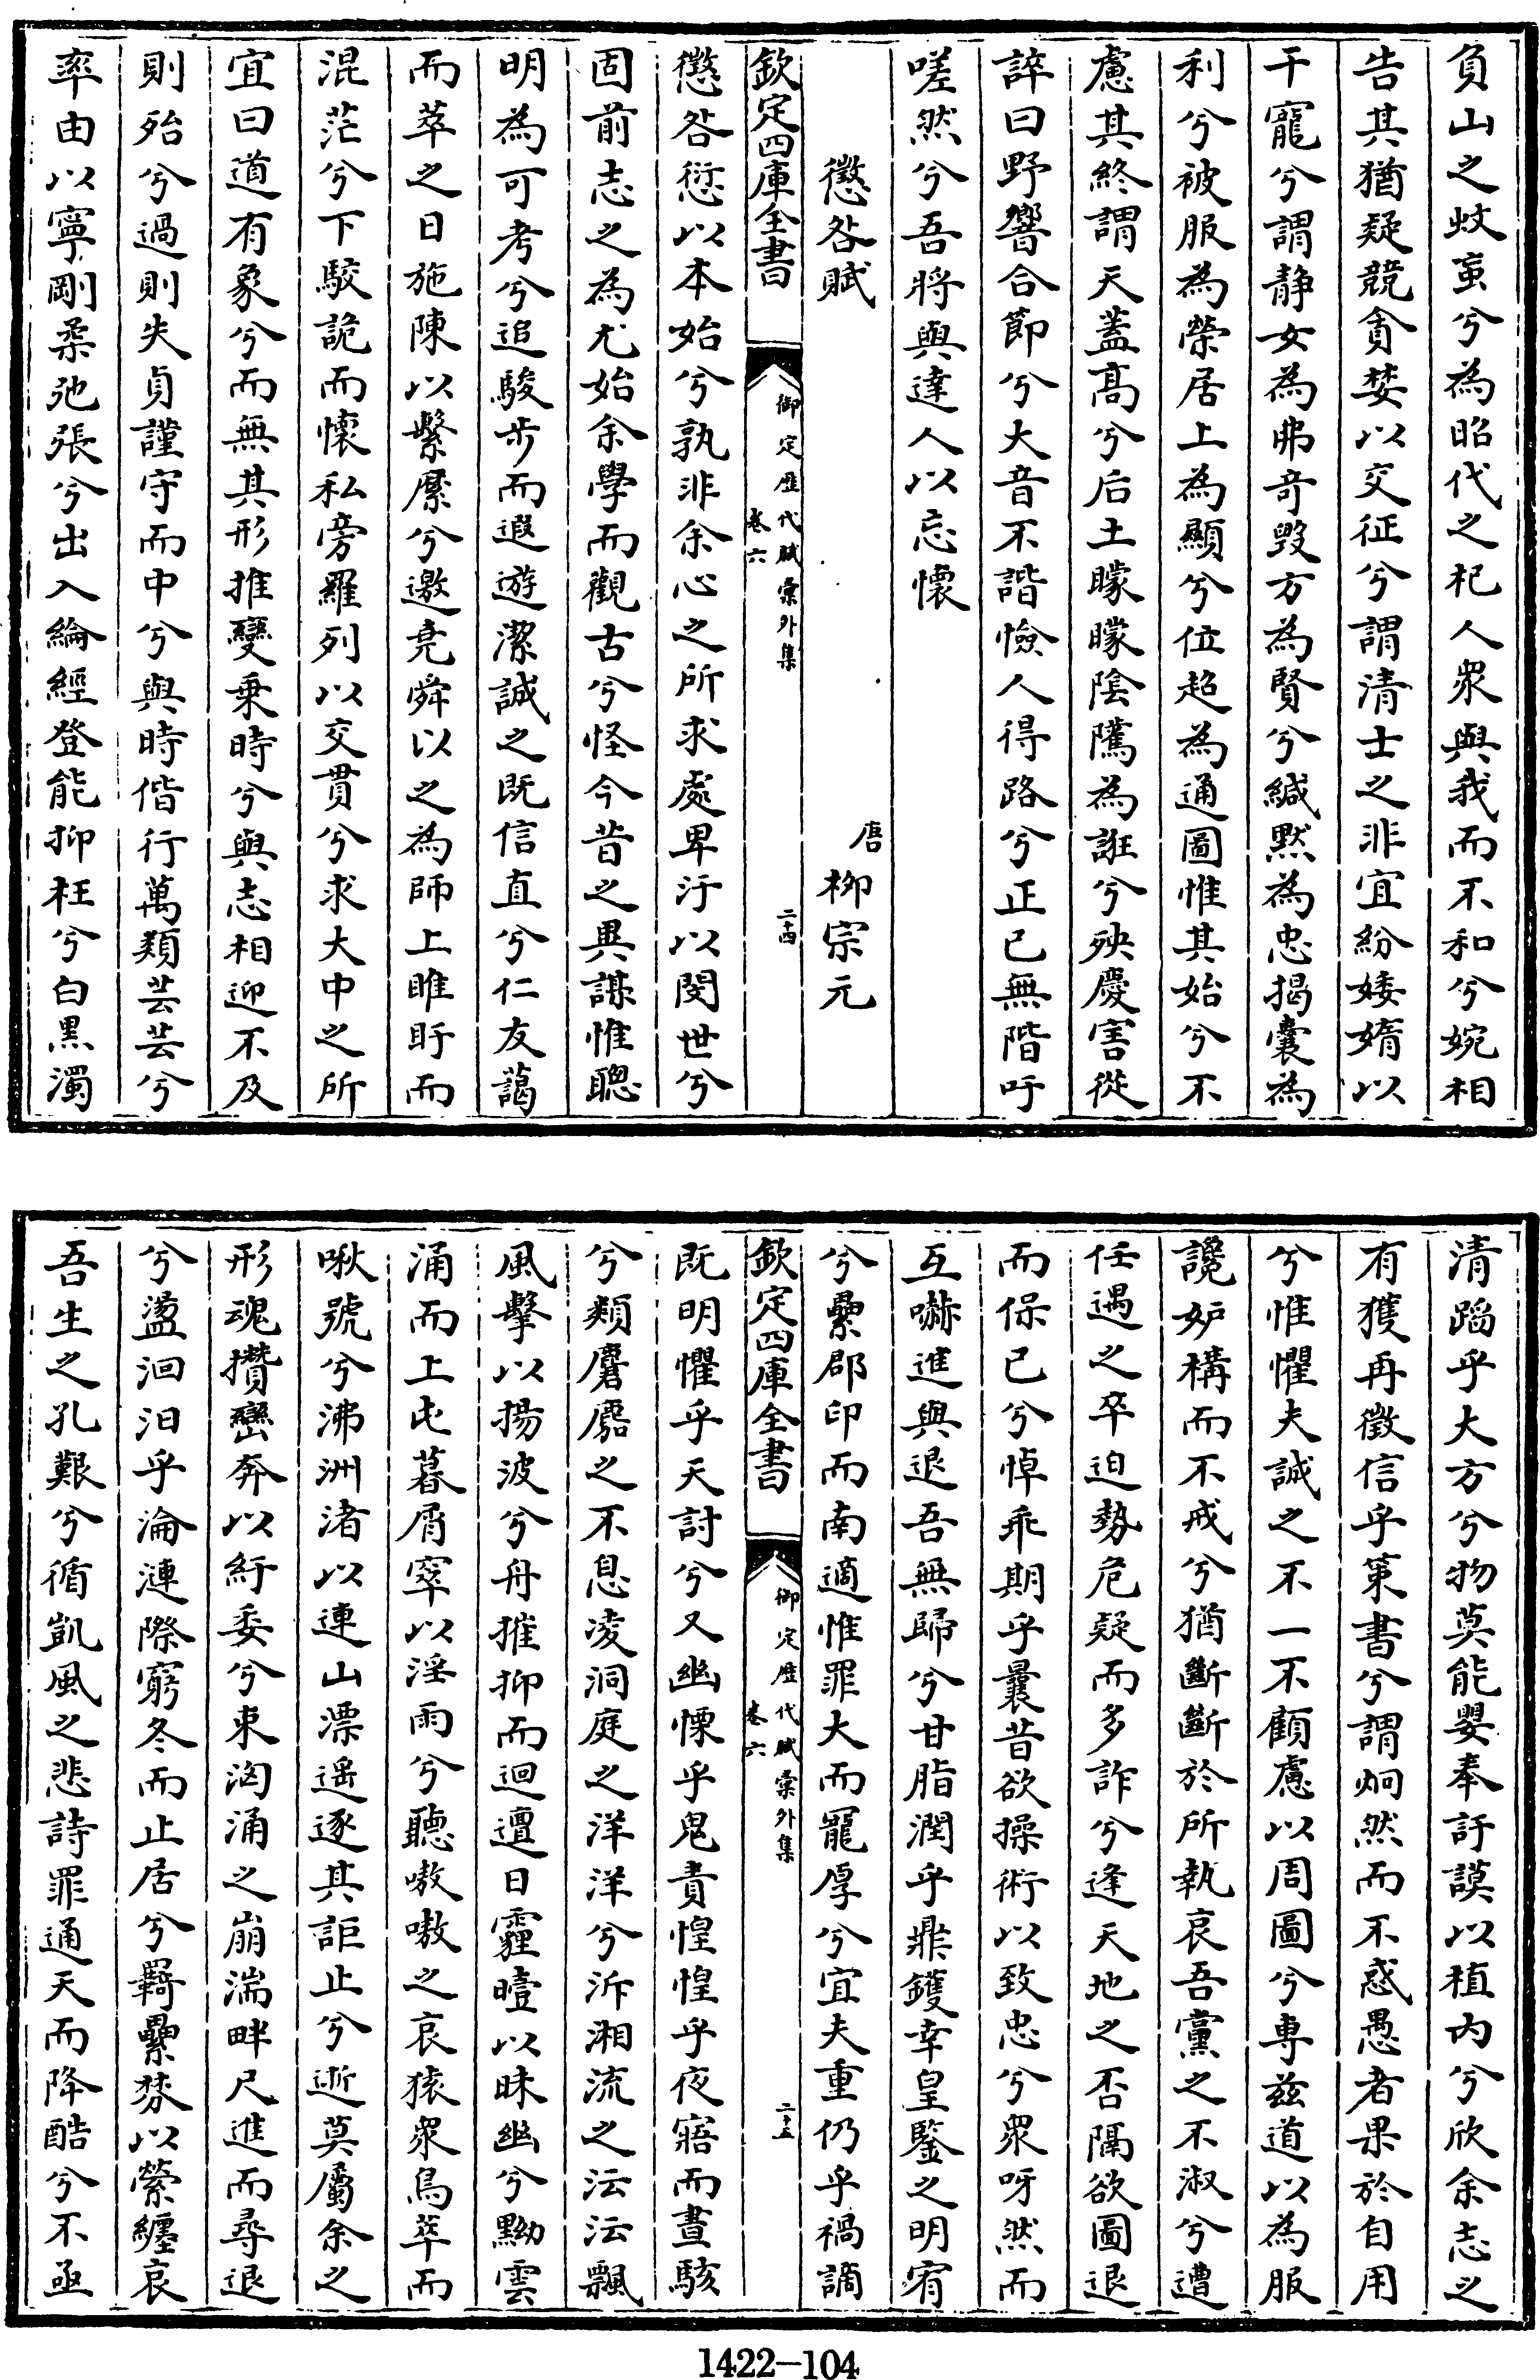 負山之蚊䖟兮為昭代之杞人衆與我而不和兮婉相
告其猶疑競貪婪以交征兮謂清士之非宜紛婑媠以
干寵兮謂静女為弗竒毁方為賢兮緘黙為忠揭囊為
利兮被服為榮居上為顯兮位超為通圖惟其始兮不
慮其終謂天蓋髙兮后土矇矇隂隲為誑兮殃慶害從
誶曰野響合節兮大音不諧憸人得路兮正已無階吁
嗟然兮吾將與達人以忘懐
懲咎賦
唐
栁宗元
欽定四庫全書
御定歴代賦彙外集
卷六
二十四
懲咎愆以本始兮孰非余心之所求處卑汙以閔世兮
固前志之為尤始余學而觀古兮怪今昔之異謀惟聰
明為可考兮追駿步而遐遊潔誠之既信直兮仁友藹
而萃之日施陳以繫縻兮邀堯舜以之為師上睢盱而
混茫兮下駮詭而懐私旁羅列以交貫兮求大中之所
宜曰道有象兮而無其形推變乗時兮與志相迎不及
則殆兮過則失貞謹守而中兮與時偕行萬類芸芸兮
率由以寧剛柔弛張兮出入綸經登能抑枉兮白黒濁
清蹈乎大方兮物莫能嬰奉訏謨以植内兮欣余志之
有獲再徵信乎策書兮謂炯然而不惑愚者果於自用
兮惟懼夫誠之不一不顧慮以周圖兮専兹道以為服
讒妒構而不戒兮猶斷斷於所執哀吾黨之不淑兮遭
任遇之卒迫勢危疑而多詐兮逢天地之否隔欲圖退
而保已兮悼乖期乎曩昔欲操術以致忠兮衆呀然而
互嚇進與退吾無歸兮甘脂潤乎鼎鑊幸皇鑒之明宥
兮纍郡印而南適惟罪大而寵厚兮宜夫重仍乎禍謫
欽定四庫全書
御定歴代賦彙外集
卷六
二十五
既明懼乎天討兮又幽慄乎鬼責惶惶乎夜寤而晝駭
兮類麏麚之不息凌洞庭之洋洋兮泝湘流之沄沄飄
風擊以揚波兮舟摧抑而迴邅日霾曀以昧幽兮黝雲
涌而上屯暮屑窣以淫雨兮聽嗷嗷之哀猿衆鳥萃而
啾號兮沸洲渚以連山漂遥逐其詎止兮逝莫屬余之
形魂攢巒奔以紆委兮束洶涌之崩湍畔尺進而尋退
兮盪洄汩乎淪漣際窮冬而止居兮羁纍棼以縈纏哀
吾生之孔艱兮循凱風之悲詩罪通天而降酷兮不亟
1422—104